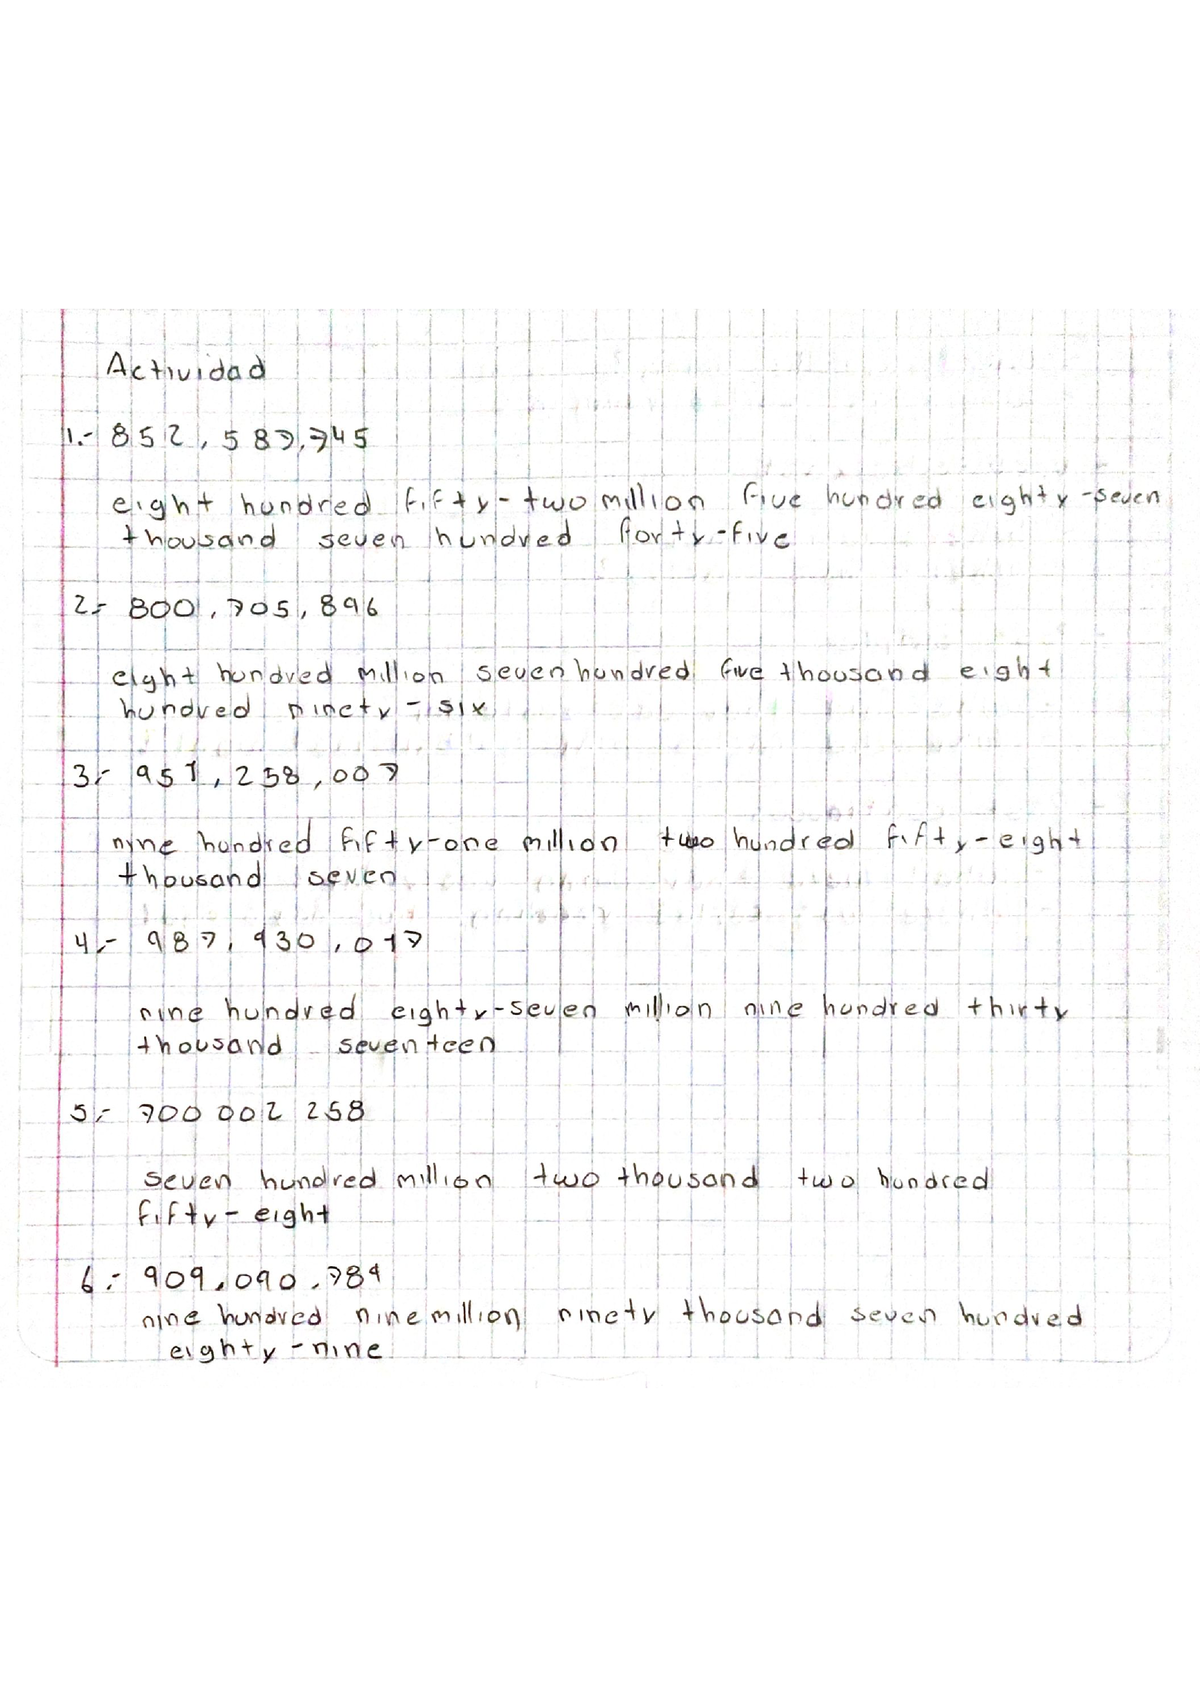 Actividad
1.- 852,587,745
eight hundred fifty-two million five hundred eighty-seven
thousand seven hundred forty-five
2.- 800,705,896
eight hundred million seven hundred five thousand eight
hundred ninety-six
3.- 951,258,007
nyne hundred fifty-one million two hundred fifty-eight
thousand seven
4.- 987,930,017
nine hundred eighty-seven million nine hundred thirty
thousand seventeen
5.- 700 002 258
seven hundred million two thousand two hundred
fifty-eight
6.- 909,090,789
nine hundred nine million ninety thousand seven hundred
eighty-nine